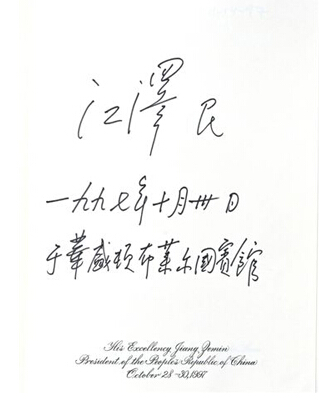 江澤民
一九九七年十月卅日
于華盛頓布萊尔國賓館
His Excellency Jiang Zemin
President of the People's Republic of China
October 28-30, 1997